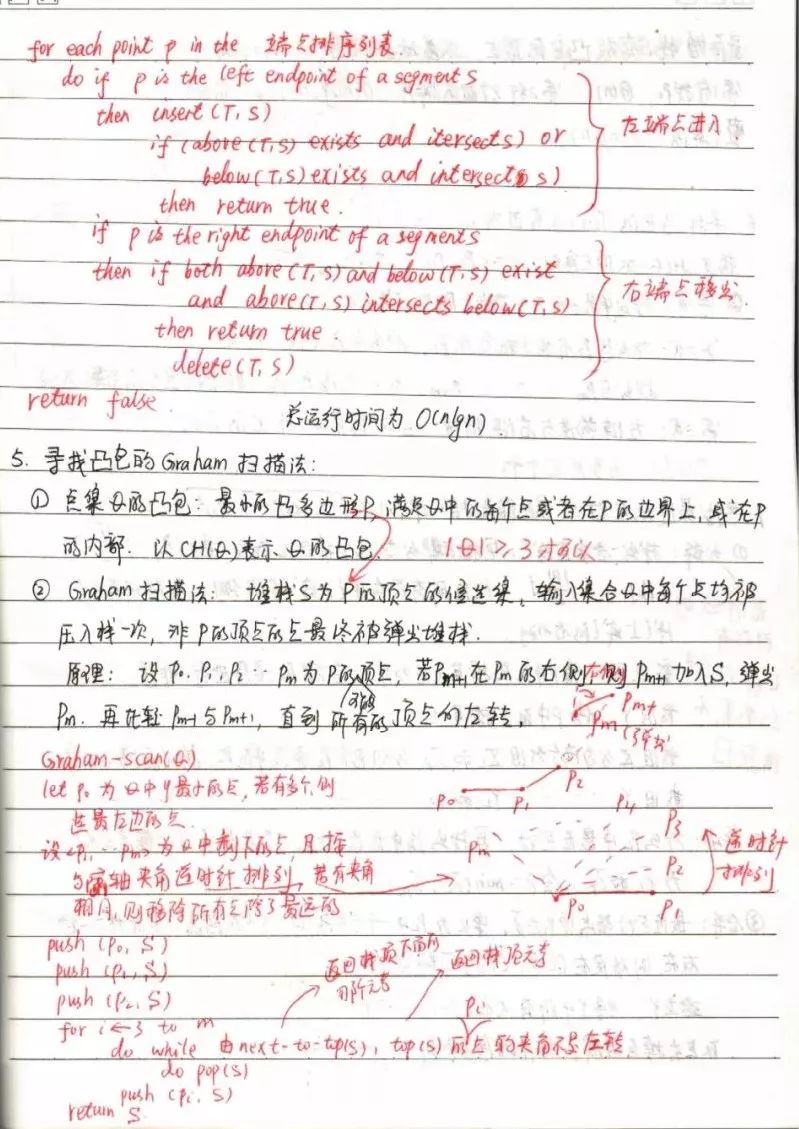 for each point p in the 端点排序列表
do if p is the left endpoint of a segment s
then insert (T, S)
if (above (T, S) exists and itersects s) or
below (T, S) exists and intersects s)
then return true.
左端点进入.
if p is the right endpoint of a segment s
then if both above (T, S) and below (T, S) exist
and above (T, S) intersects below (T, S)
then return true
delete (T, S)
右端点移出.
return false
总运行时间为 O(nlgn)
5. 寻找凸包的 Graham 扫描法:
① 点集Q的凸包: 最小的凸多边形P, 满足Q中的每个点或者在P的边界上, 或在P
的内部. 以 CH(Q)表示 Q的凸包. |Q| ≥ 3 才可以
② Graham 扫描法: 堆栈S为 P的顶点的候选集, 输入集合Q中每个点均被
压入栈一次, 非P的顶点的点最终被弹出堆栈.
原理: 设 P0. P1, P2 … Pm 为 P的顶点, 若Pm+1 在 Pm 的右侧, 则 Pm+1 加入S, 弹出
可能
右侧
Pm. 再比较 Pm-1 与 Pm+1, 直到 所有的顶点向左转.
Pm+1
Pm (弹出
Graham-scan(Q)
let P0 为 Q中 y最小的点, 若有多个, 则
选最左边的点
P0 P1 P2
设<P1 … Pm> 为 Q中剩下的点, 且按
与轴夹角逆时针排列, 若有夹角
相同, 则移除所有点除了最远的
Pm P4 P3 P2 P1 P0
逆时针
排列
push (P0, S)
push (P1, S)
push (P2, S)
返回栈顶下面的
那个元素
返回栈顶元素
for i ← 3 to m
Pi
do while 由next-to-top(S), top(S) 的点的夹角不是左转
do pop(S)
push (Pi, S)
return S